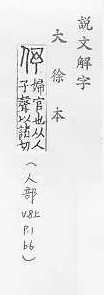 說文解字
大徐本
伃
婦官也从人
予聲以諸切
(人部 v8上 P.1 b6)